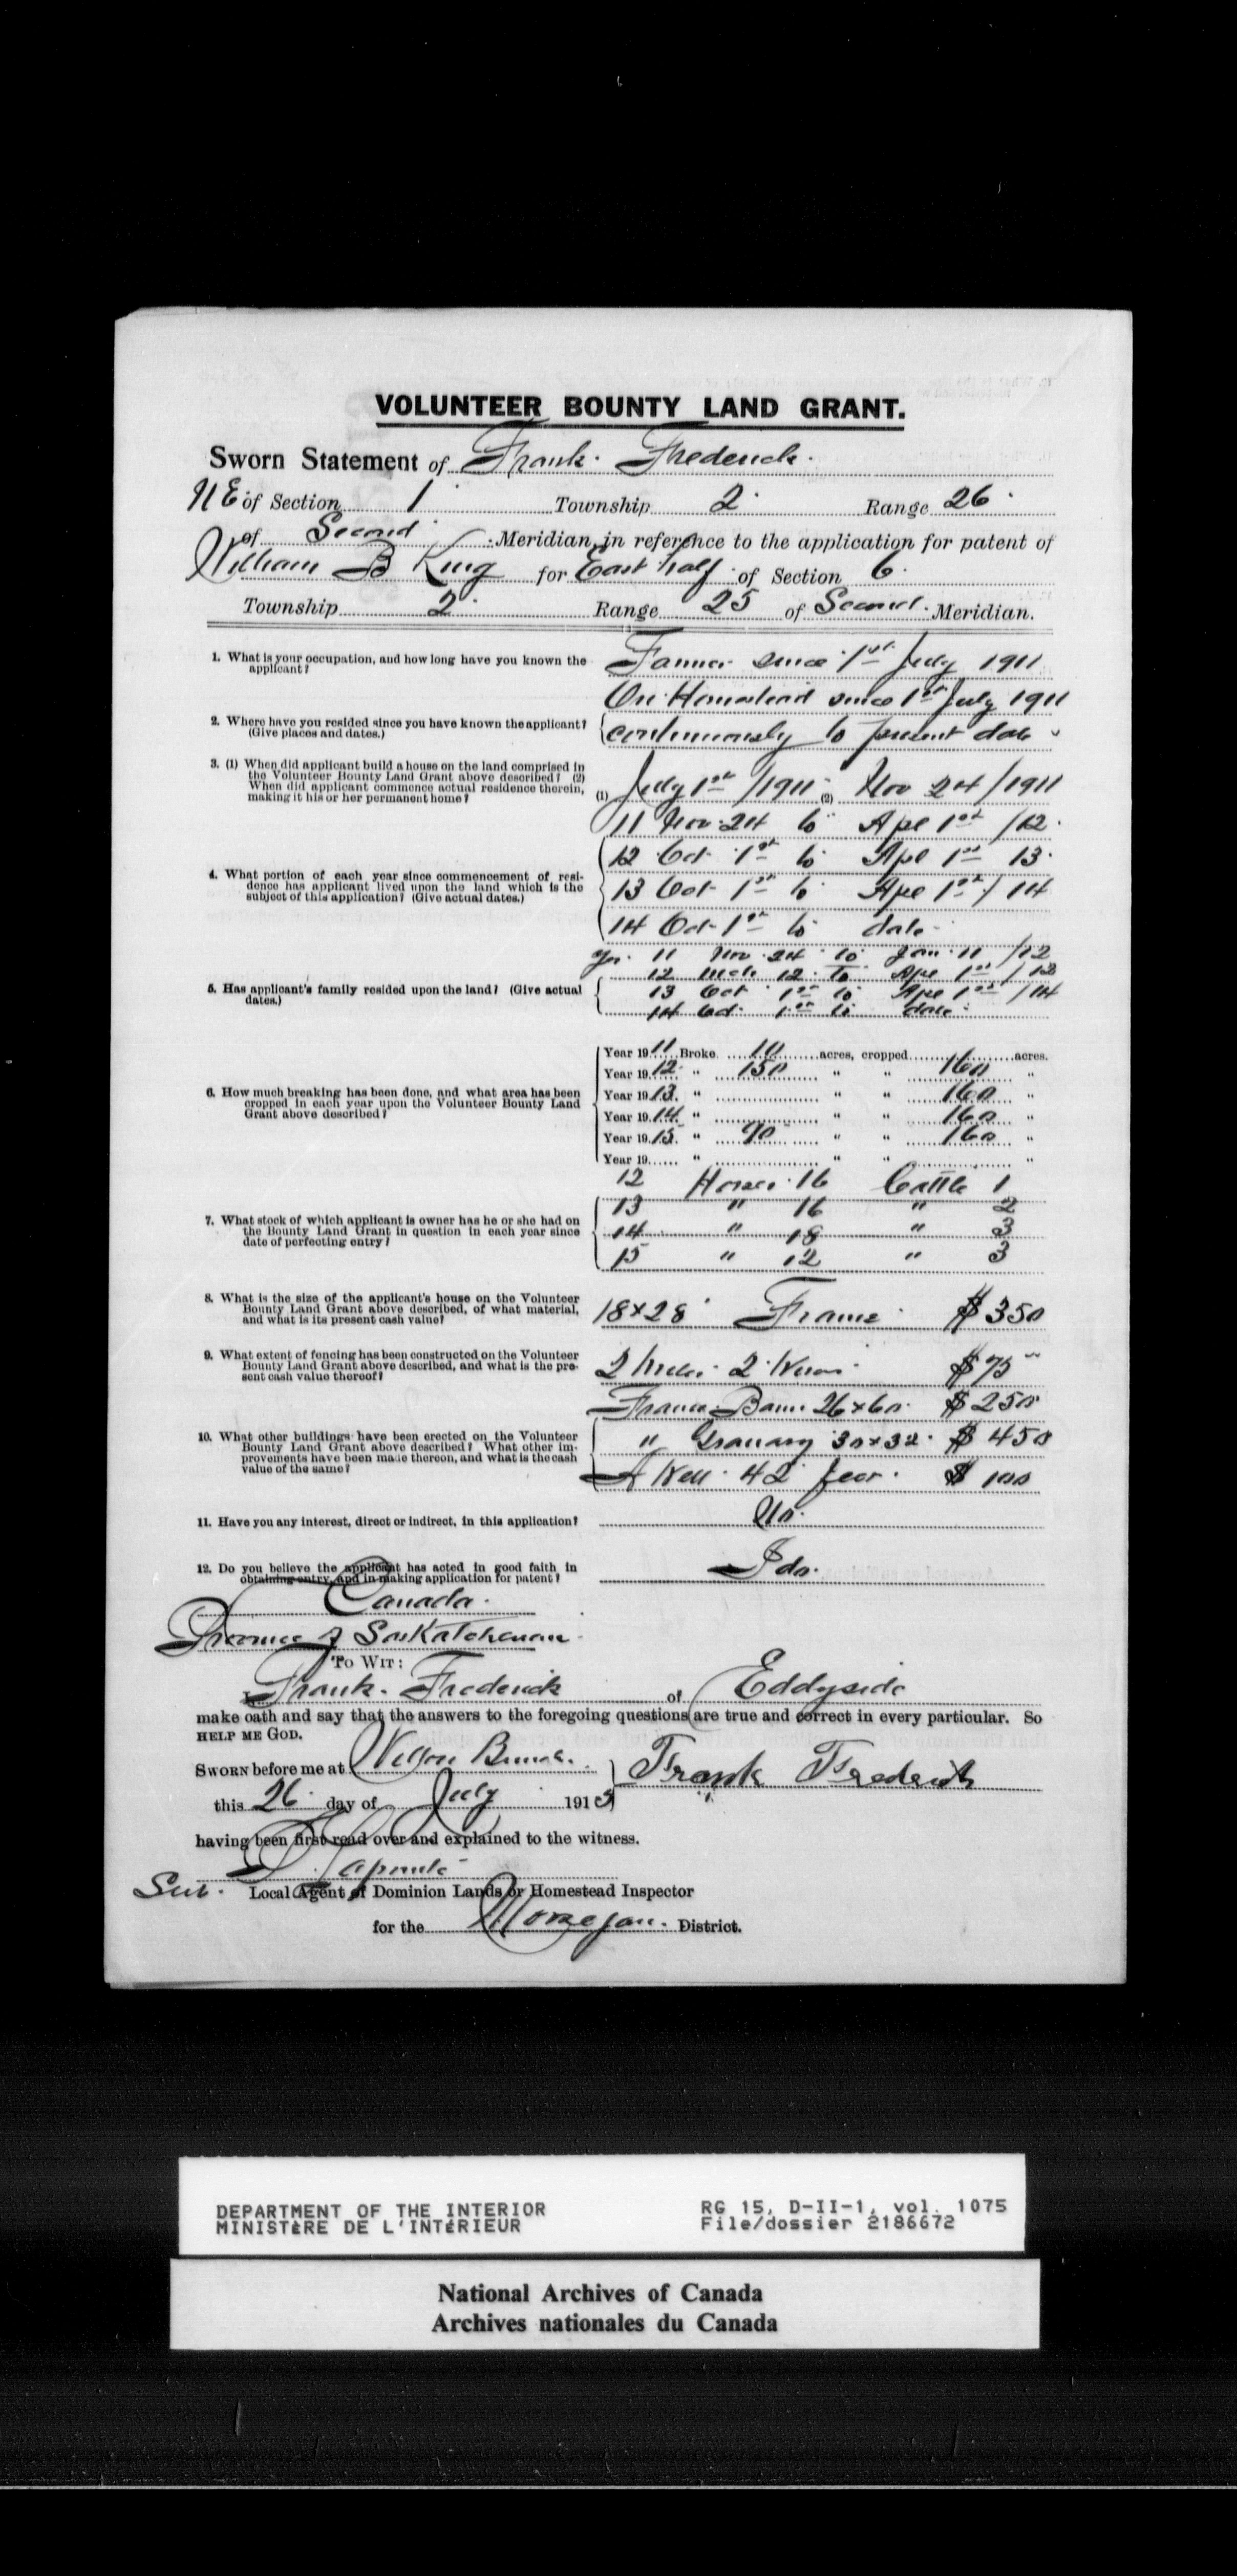 VOLUNTEER BOUNTY LAND GRANT.
Sworn Statement of Frank Frederick
NE of Section 1 Township 2 Range 26
of Second Meridian, in reference to the application for patent of
William B King for East half of Section 6
Township 2 Range 25 of Second Meridian.
1. What is your occupation, and how long have you known the applicant? Farmer since 1st July 1911
On Homestead since 1st July 1911
2. Where have you resided since you have known the applicant? (Give places and dates.) continuously to present date
3. (1) When did applicant build a house on the land comprised in
the Volunteer Bounty Land Grant above described? (2)
When did applicant commence actual residence therein,
making it his or her permanent home? (1) July 1st/1911 (2) Nov 24/1911
11 Nov 24 to Apl 1st/12
12 Oct 1st to Apl 1st 13
4. What portion of each year since commencement of resi-
dence has applicant lived upon the land which is the
subject of this application? (Give actual dates.) 13 Oct 1st to Apl 1st/14
14 Oct 1st to date
Yes. 11 Nov 24 to Jan 11/12
12 Mch 12 to Apl 1st/12
5. Has applicant's family resided upon the land? (Give actual
dates.) 13 Oct 1st to Apl 1st/14
14 Oct 1st to date
6. How much breaking has been done, and what area has been
cropped in each year upon the Volunteer Bounty Land
Grant above described?
Year 1911 Broke 10 acres, cropped 160 acres.
Year 1912 " 150 " " 160 "
Year 1913 " " " 160 "
Year 1914 " " " 160 "
Year 1915 " 90 " " 160 "
Year 19 " " " "
12 Horses 16 Cattle 1
13 " 16 " 2
7. What stock of which applicant is owner has he or she had on
the Bounty Land Grant in question in each year since
date of perfecting entry?
14 " 18 " 3
15 " 12 " 3
8. What is the size of the applicant's house on the Volunteer
Bounty Land Grant above described, of what material,
and what is its present cash value? 18x28 Frame $350
9. What extent of fencing has been constructed on the Volunteer
Bounty Land Grant above described, and what is the pre-
sent cash value thereof? 2 miles 2 Wires $75
Frame Barn 26x60 $250
10. What other buildings have been erected on the Volunteer
Bounty Land Grant above described? What other im-
provements have been made thereon, and what is the cash
value of the same?
" Granary 30x32 $450
A Well 42 feet $100
11. Have you any interest, direct or indirect, in this application? No.
12. Do you believe the applicant has acted in good faith in
obtaining entry, and in making application for patent? I do.
Canada
Province of Saskatchewan
TO WIT:
I Frank Frederick of Eddyside
make oath and say that the answers to the foregoing questions are true and correct in every particular. So
HELP ME GOD.
SWORN before me at Frank Frederick
this 26 day of July 191
having been first read over and explained to the witness.
Sub. Local Agent of Dominion Lands or Homestead Inspector
for the District.
DEPARTMENT OF THE INTERIOR RG 15, D-II-1, vol. 1075
MINISTÈRE DE L'INTÉRIEUR File/dossier 2186672
National Archives of Canada
Archives nationales du Canada